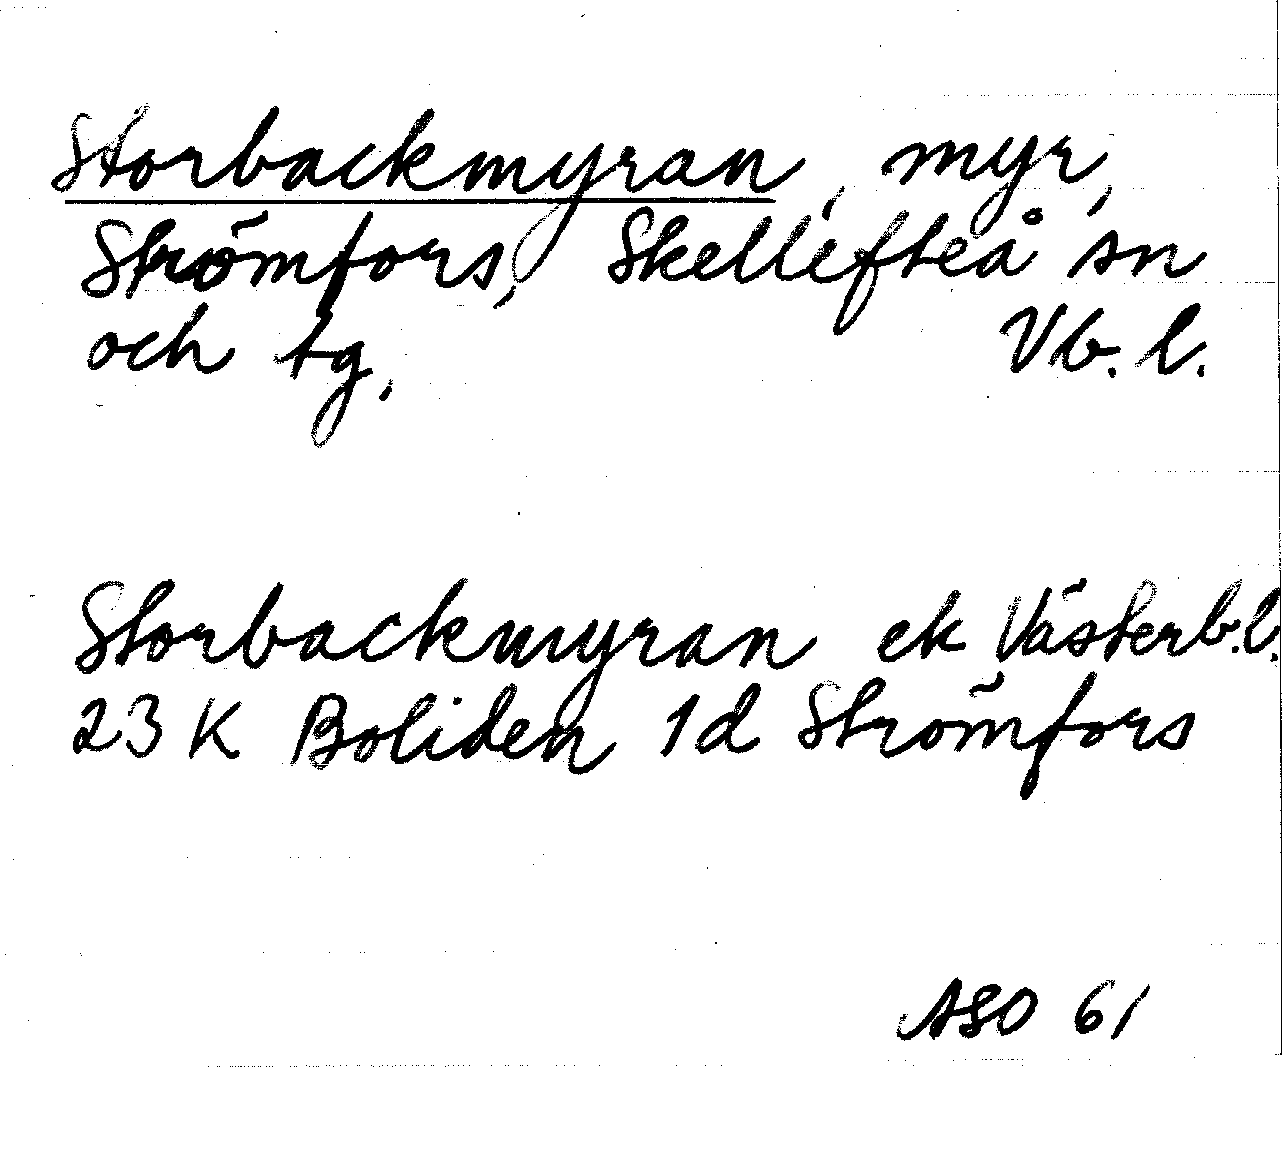 Storbackmyran, myr,
Strömfors, Skellefteå sn
och tg, Vb. l.
Storbackmyran ek Västerb.l.
23 K Boliden 1d Strömfors
ASO 61